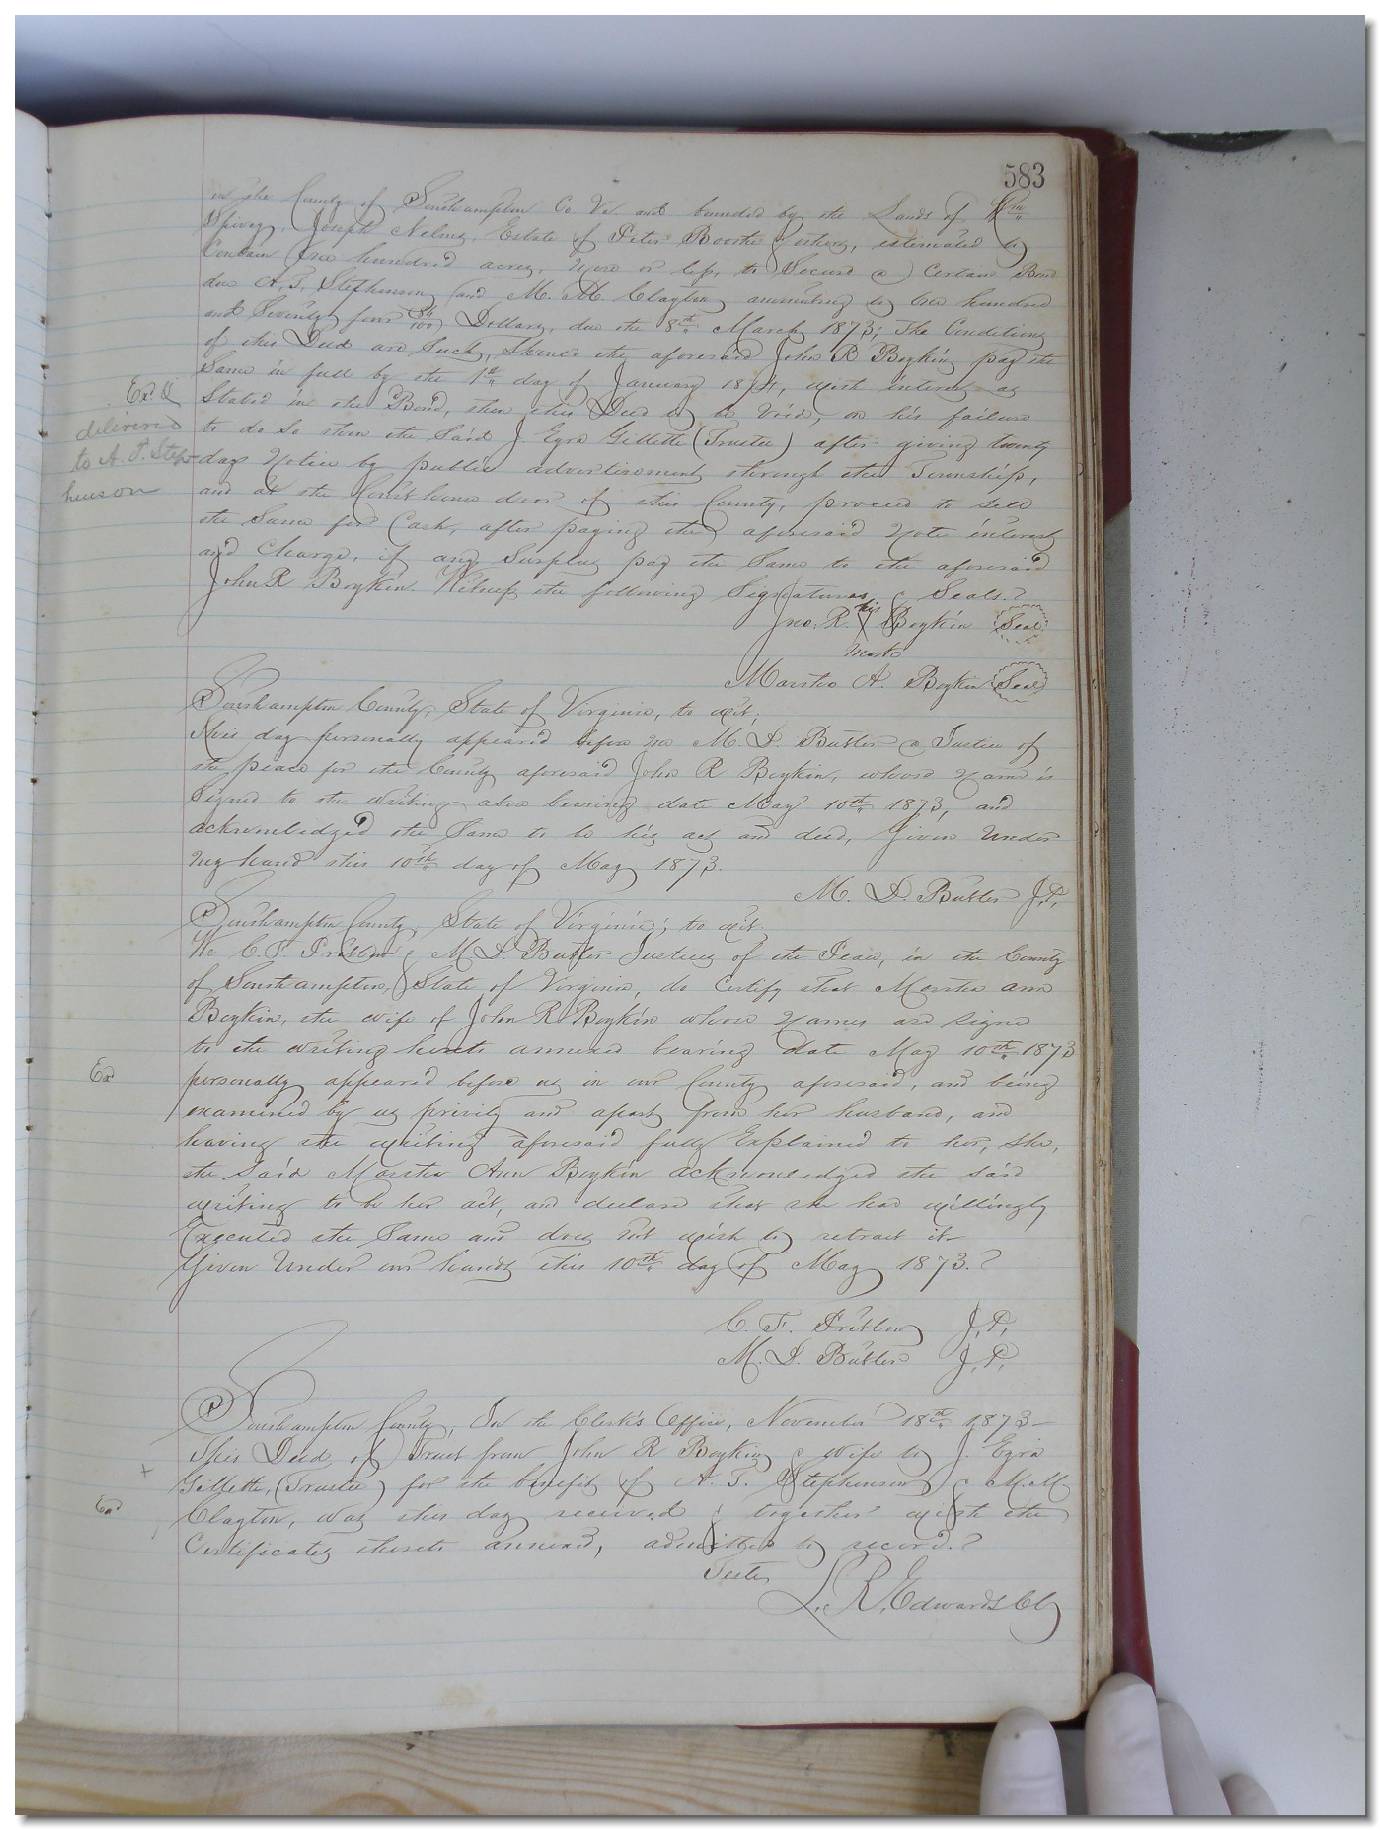 583
in the County of Southampton Co Va. and bounded by the Lands of Wm
Spivey, Joseph Nelms, Estate of Peter Boothe & others, estimated to
Contain One hundred acres, more or less, to Secure a Certain Bond
due A. T. Stephenson and M. M. Clayton amounting to two hundred
and Seventy four Dollars, due the 8th March 1873; The Conditions
of this Deed are Such, Should the aforesaid John R Boykin pay the
Same in full by the 1st day of January 1874, with interest as
Stated in the Bond, then this Deed to be Void, on his failure
to do So then the Said J. Ezra Gillette (Trustee) after giving twenty
days Notice by public advertisement through the Township,
and at the Courthouse door of this County, proceed to sell
the Same for Cash, after paying the aforesaid Note interest
and Charge, if any Surplus pay the Same to the aforesaid
John R Boykin. Witness the following Signatures & Seals.
Exd &
delivered
to A. T. Step-
henson
his
Jno. R. X Boykin Seal
mark
Martha A. Boykin Seal
Southampton County, State of Virginia, to wit;
This day personally appeared before me M. D. Butler a Justice of
the peace for the County aforesaid John R Boykin, whose Name is
Signed to the writing above bearing date May 10th 1873, and
acknowledged the Same to be his act and deed, Given Under
my hand this 10th day of May 1873.
M. D. Butler J.P.
Southampton County, State of Virginia; to wit.
We C. F. & M. D. Butler Justices of the Peace, in the County
of Southampton, State of Virginia, do Certify that Martha ann
Boykin, the wife of John R Boykin whose Names are Signed
to the writing hereto annexed bearing date May 10th 1873
Exd
personally appeared before us in our County aforesaid, and being
examined by us privily and apart from her husband, and
having the writing aforesaid fully Explained to her, She,
the Said Martha Ann Boykin acknowledged the said
writing to be her act, and declared that she had willingly
Executed the Same and does not wish to retract it-
Given Under our hands this 10th day of May 1873.
C. F. J.P.
M. D. Butler J.P.
Southampton County, In the Clerk's Office, November 18th 1873-
This Deed of Trust from John R Boykin & wife to J. Ezra
Gillette, (Trustee) for the benefit of A. T. Stephenson & M. M
Exd
Clayton, was this day received & together with the
Certificates thereto annexed, admitted to record.
Teste,
L. R. Edwards Clk